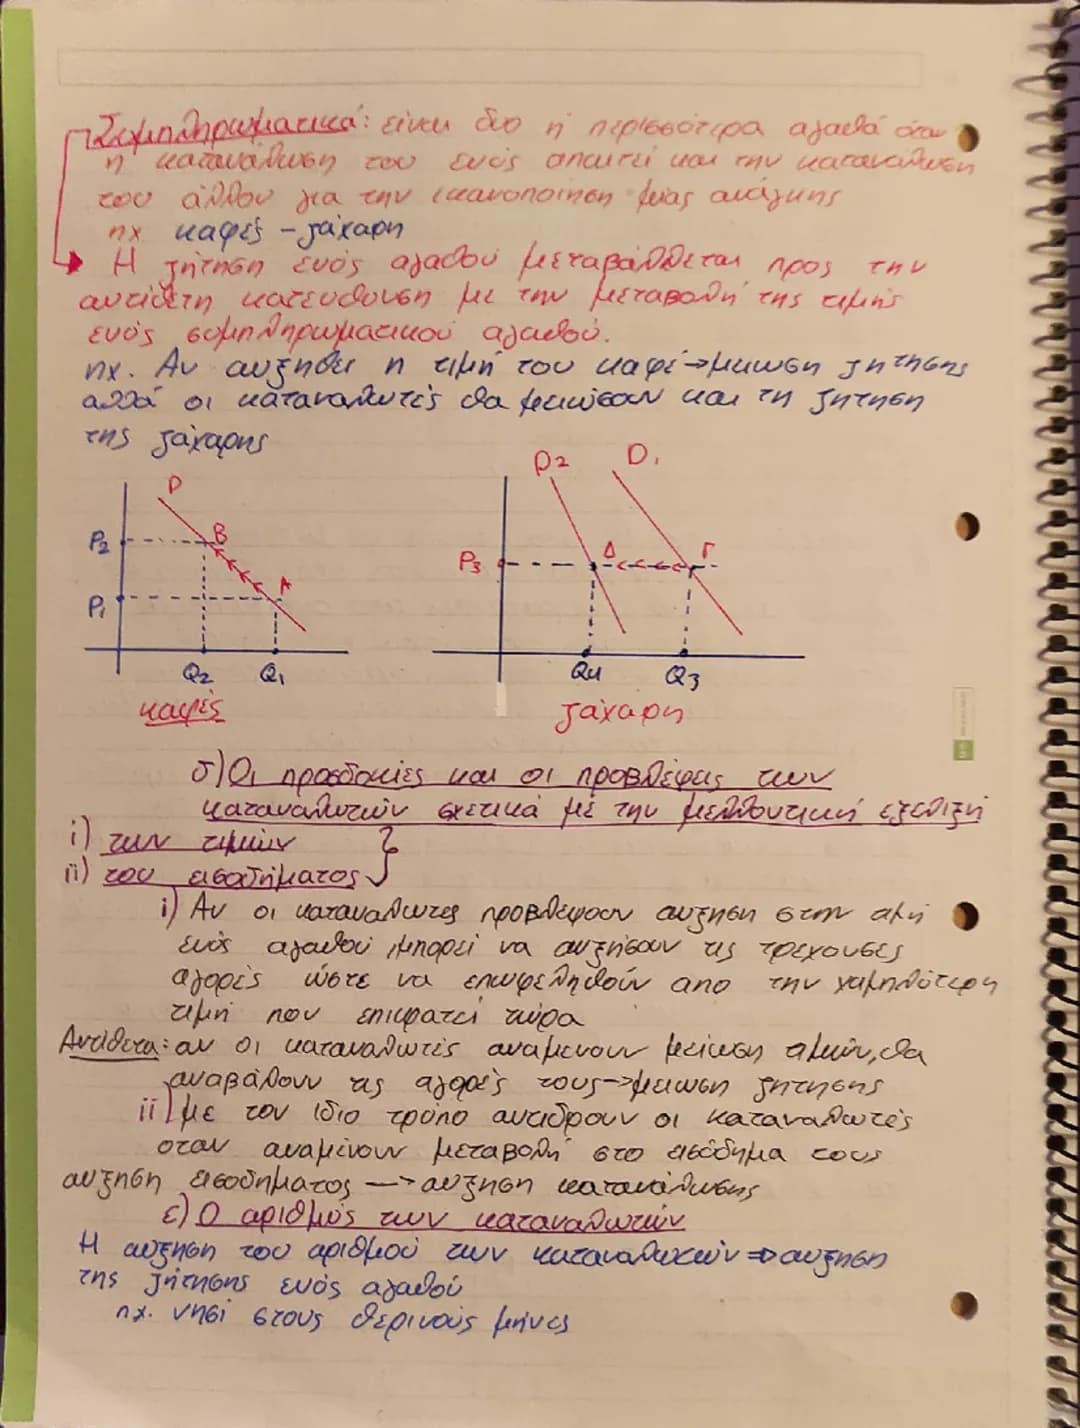 Συμπληρωματικά: είναι δυο ή περισσότερα αγαθά όταν
η κατανάλωση του ενός απαιτεί και την κατανάλωση
του άλλου για την ικανοποίηση μιας ανάγκης
πχ καφές - ζάχαρη
Η ζήτηση ενός αγαθού μεταβάλλεται προς την
αντίθετη κατεύθυνση με την μεταβολή της τιμής
ενός συμπληρωματικού αγαθού.
πχ. Αν αυξηθεί η τιμή του καφέ→μείωση ζήτησης
αλλά οι καταναλωτές θα μειώσουν και τη ζήτηση
της ζάχαρης
D
P2
B
P1
A
Q2 Q1
καφές
D2 D1
P3
Δ
Γ
Q4 Q3
ζάχαρη
δ) Οι προσδοκίες και οι προβλέψεις των
καταναλωτών σχετικά με την μελλοντική εξέλιξη
i) των τιμών
ii) του εισοδήματος
i) Αν οι καταναλωτες προβλέψουν αυξηση στην τιμή
ενός αγαθού μπορεί να αυξήσουν τις τρέχουσες
αγορές ώστε να επωφεληθούν απο την χαμηλότερη
τιμή που επικρατεί τώρα
Αντίθετα: αν οι καταναλωτές αναμένουν μείωση τιμών, θα
αναβάλουν τις αγορές τους→μειωση ζητησης
ii) με τον ίδιο τρόπο αντιδρουν οι καταναλωτές
οταν αναμένουν μεταβολή στο εισόδημα τους
αυξηση εισοδηματος → αυξηση κατανάλωσης
ε) Ο αριθμός των καταναλωτών
Η αυξηση του αριθμού των καταναλωτών ⇒ αυξηση
της ζήτησης ενός αγαθού
πχ. νησί στους θερινούς μήνες